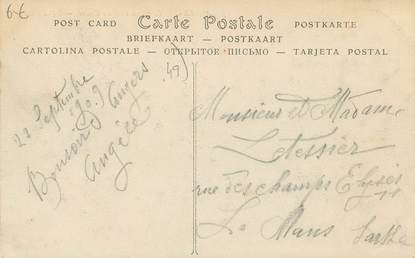 6€
POST CARD Carte Postale POSTKARTE
BRIEFKAART — POSTKAART
CARTOLINA POSTALE — ОТКРЫТОЕ ПИСЬМО — TARJETA POSTAL
22 Septembre
1909
Bonsoir d'Angers
Angèle
(49)
Monsieur et Madame
Letessier
rue des champs Elysées
Le Mans Sarthe